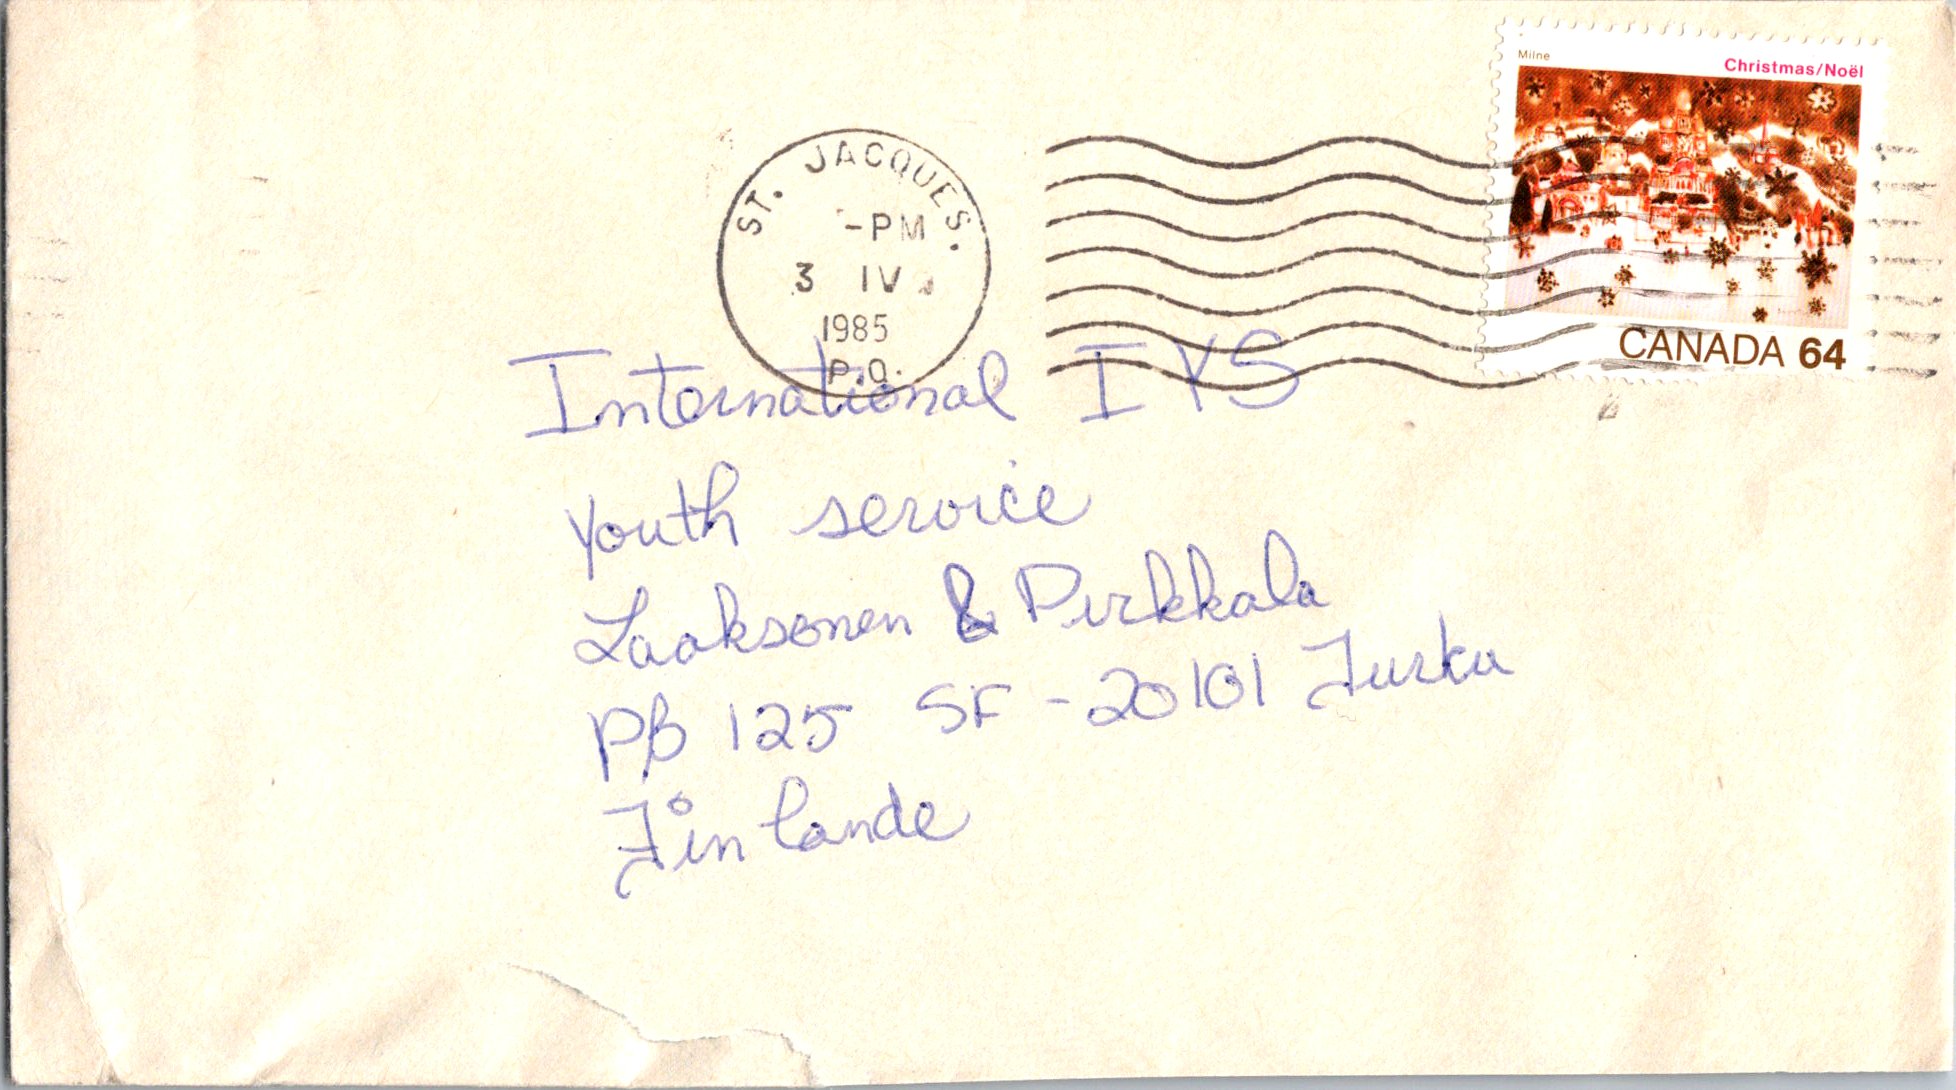 Milne
Christmas/Noël
CANADA 64
ST. JACQUES.
-PM
3 IV
1985
P.Q.
International IYS
Youth service
Laaksonen & Pirkkala
PB 125 SF-20101 Turku
Finlande